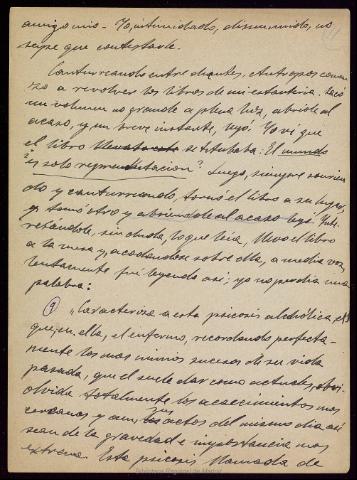 amigo mio. Yo, intimidado, disminuido, no
supe que contestarle.
Canturreando entre dientes, Antropos comen-
zó a revolver los libros de mi estantería. Sacó
un volumen no grande a plena luz, abriole al
acaso, y, un breve instante, leyó. Yo vi que
el libro se titulaba: El mundo
¿es solo representacion? Luego, siempre sonrien-
do y canturreando, tornó el libro a su lugar,
y tomó otro y abriéndole al acaso leyó.
sin duda, lo que leia, llevó el libro
a la mesa y, acodándose sobre ella, a media voz,
lentamente fué leyendo así; yo no perdía una
palabra:
"Caracteriza a esta psicosis alcohólica, el
que, en ella, el enfermo, recordando perfecta-
mente los mas nimios sucesos de su vida
pasada, que él suele dar como actuales,
olvida totalmente los acaecimientos mas
cercanos y aun, sus actos del mismo dia así
sean de la gravedad e importancia mas
extrema. Esta psicosis llamada de
Biblioteca Regional de Madrid